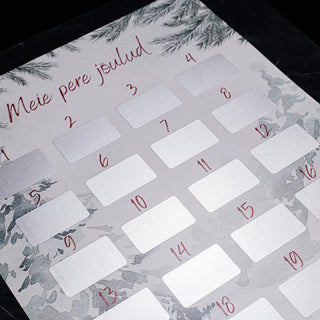 Meie pere joulud
1 2 3 4
5 6 7 8
9 10 11 12
13 14 15 16
18 19